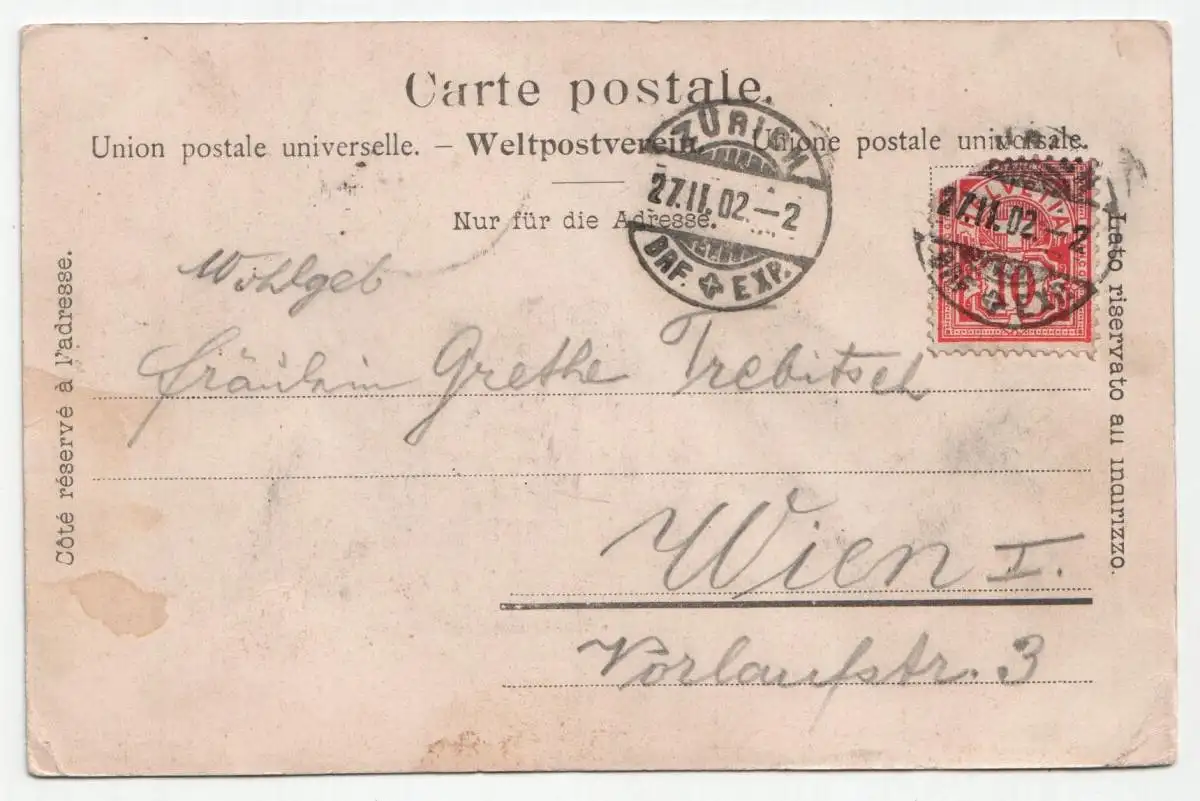 Carte postale.
Union postale universelle. – Weltpostverein. – Unione postale universale.
Nur für die Adresse.
ZÜRICH
27.II.02.–2
BRF. EXP.
HELVETIA
10
27.II.02.–2
EXP.
Côté réservé à l'adresse.
Lato riservato all indirizzo.
Wohlgeb
Fräulein Grethe Trebitsch
Wien I.
Vorlaufstr. 3